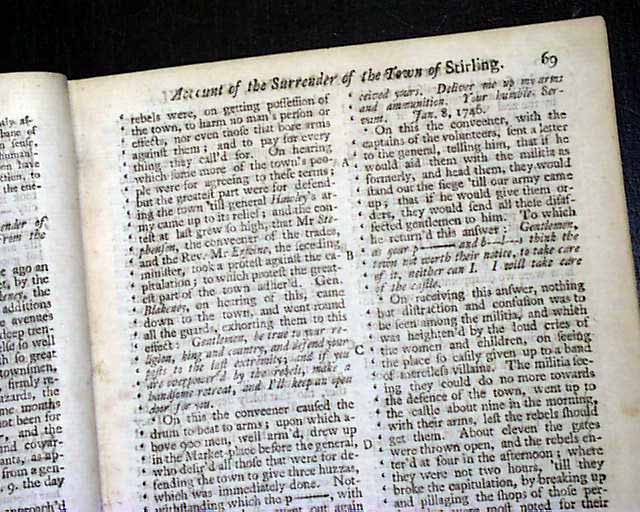 Account of the Surrender of the Town of Stirling. 69
' rebels were, on getting possession of
' the town, to harm no man's person or
' effects, nor even those that bore arms
' against them; and to pay for every
' thing they call'd for. On hearing
' which some more of the town's peo-
' ple were for agreeing to these terms;
' but the greatest part were for defend-
' ing the town 'till general Hawley's ar-
' my came up to its relief; and the con-
' test at last grew so high, that Mr Ste-
' phenson, the conveener of the trades,
' and the Rev. Mr Erskine, the seceding
' minister, took a protest against the ca-
' pitulation; to which protest the great-
' est part of the town adher'd. Gen.
' Blakeney, on hearing of this, came
' down to the town, and went round
' all the guards, exhorting them to this
' effect: Gentlemen, be true to your re-
' ligion, king and country, and defend your
' posts to the last extremity; and if you
' are overpower'd by the rebels, make a
' handsome retreat, and I'll keep an open
' door for you.
' On this the conveener caused the
' drum to beat to arms; upon which a-
' bove 900 men, well arm'd, drew up
' in the Market-place before the general,
' who desir'd all those that were for de-
' fending the town to give three huzzas,
' which was immediately done. Not-
' withstanding which the p——, with
went out again
A
B
C
D
' ceived yours. Deliver me up my arms
' and ammunition. Your humble Ser-
' vant. Jan. 8, 1746.
' On this the conveener, with the
' captains of the volunteers, sent a letter
' to the general, telling him, that if he
' would aid them with the militia as
' formerly, and head them, they would
' stand out the siege 'till our army came
' up; that if he would give them or-
' ders, they would send all these disaf-
' fected gentlemen to him. To which
' he return'd this answer: Gentlemen,
' as your p—— and b——s think the
' town not worth their notice, to take care
' of it, neither can I. I will take care
' of the castle.
' On receiving this answer, nothing
' but distraction and confusion was to
' be seen among the militia, and which
' was heighten'd by the loud cries of
' the women and children, on seeing
' the place so easily given up to a band
' of merciless villains. The militia see-
' ing they could do no more towards
' the defence of the town, went up to
' the castle about nine in the morning,
' with their arms, lest the rebels should
' get them. About eleven the gates
' were thrown open, and the rebels en-
' ter'd at four in the afternoon; where
' they were not two hours, 'till they
' broke the capitulation, by breaking up
' and pillaging the shops of those per-
were most noted for their